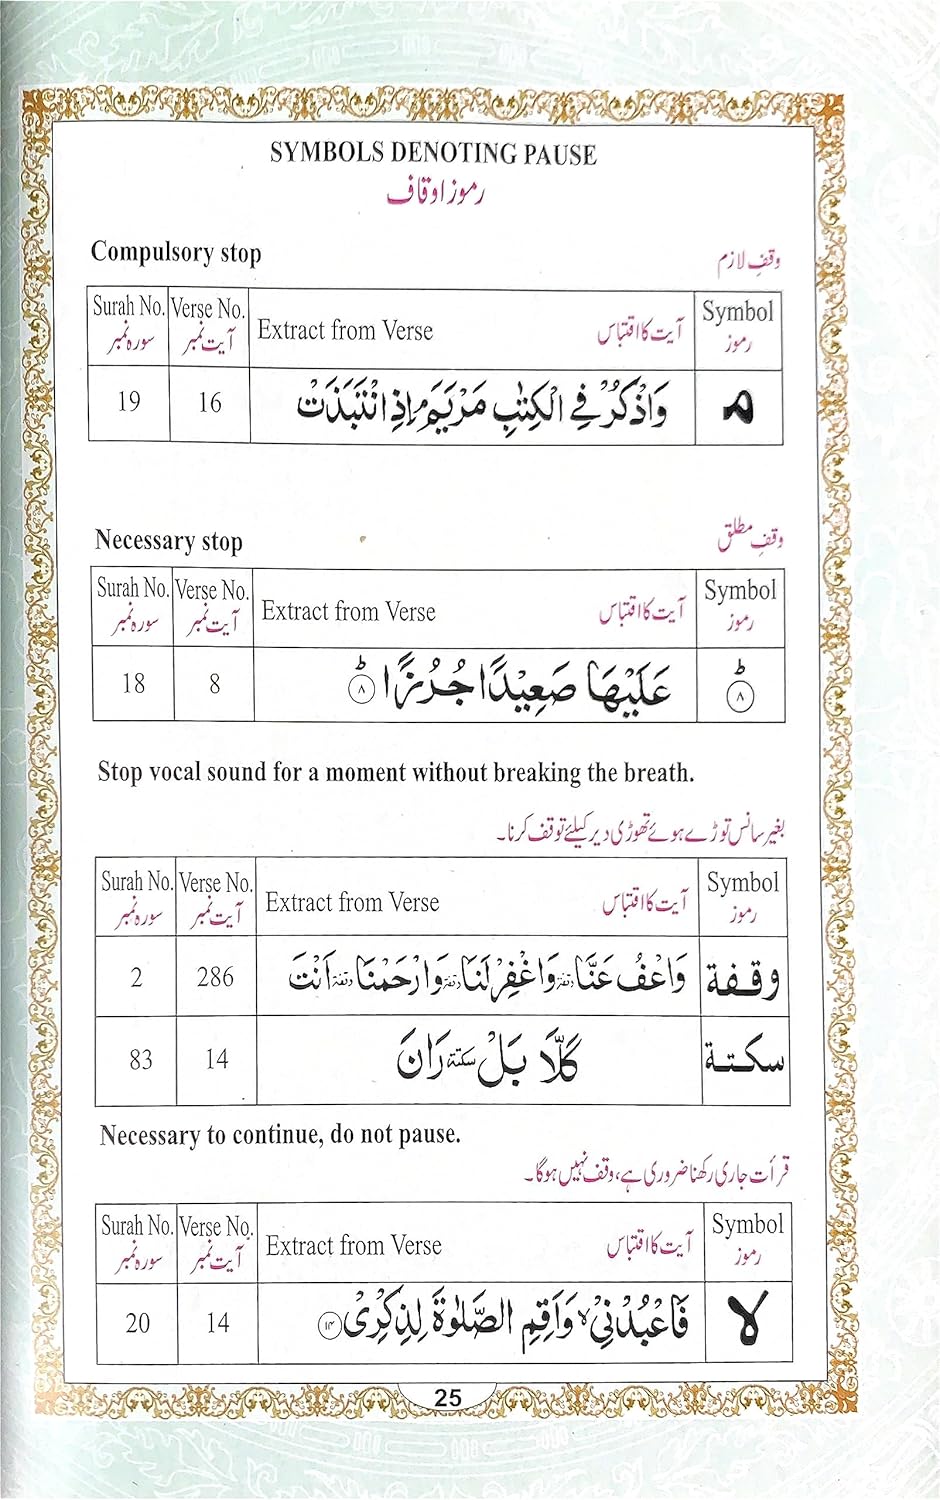 SYMBOLS DENOTING PAUSE
رموز اوقاف
Compulsory stop وقفِ لازم
Surah No. Verse No. Extract from Verse آیت کا اقتباس Symbol
سورہ نمبر آیت نمبر رموز
19 16 وَاذْكُرْ فِي الْكِتٰبِ مَرْيَمَ ۘ اِذِ انْتَبَذَتْ م
Necessary stop وقفِ مطلق
Surah No. Verse No. Extract from Verse آیت کا اقتباس Symbol
سورہ نمبر آیت نمبر رموز
18 8 عَلَيْهَا صَعِيْدًا جُرُزًا ؕ ۸ ؕ ۸
Stop vocal sound for a moment without breaking the breath.
بغیر سانس توڑے ہوئے تھوڑی دیر کیلئے توقف کرنا۔
Surah No. Verse No. Extract from Verse آیت کا اقتباس Symbol
سورہ نمبر آیت نمبر رموز
2 286 وَاعْفُ عَنَّا وقفة وَاغْفِرْ لَنَا وقفة وَارْحَمْنَا وقفة اَنْتَ وقفة
83 14 كَلَّا بَلْ سكتة رَانَ سكتة
Necessary to continue, do not pause.
قرأت جاری رکھنا ضروری ہے، وقف نہیں ہوگا۔
Surah No. Verse No. Extract from Verse آیت کا اقتباس Symbol
سورہ نمبر آیت نمبر رموز
20 14 فَاعْبُدْنِيْ ۙ وَاَقِمِ الصَّلٰوةَ لِذِكْرِيْ ۱۴ لا
25